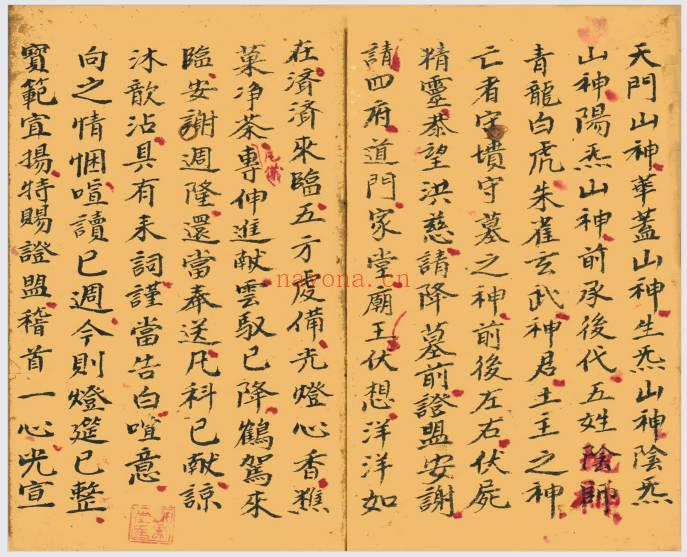 天門山神華蓋山神生炁山神陰炁
山神陽炁山神前承後代五姓陰師
青龍白虎朱雀玄武神君土主之神
亡者守墳守墓之神前後左右伏屍
精靈叅望洪慈請降墓前證盟安謝
請四府道門家堂廟王伏想洋洋如
在濟濟來臨五方度備光燈心香
菓净茶專伸進献雲馭已降鶴駕來
臨安謝週隆還當奉送凡科已献諒
沐歆沾具有耒詞謹當告白喧意
向之情悃喧讀已週今則燈筵已整
寳範宜揚特賜證盟稽首一心光宣
nayona.cn